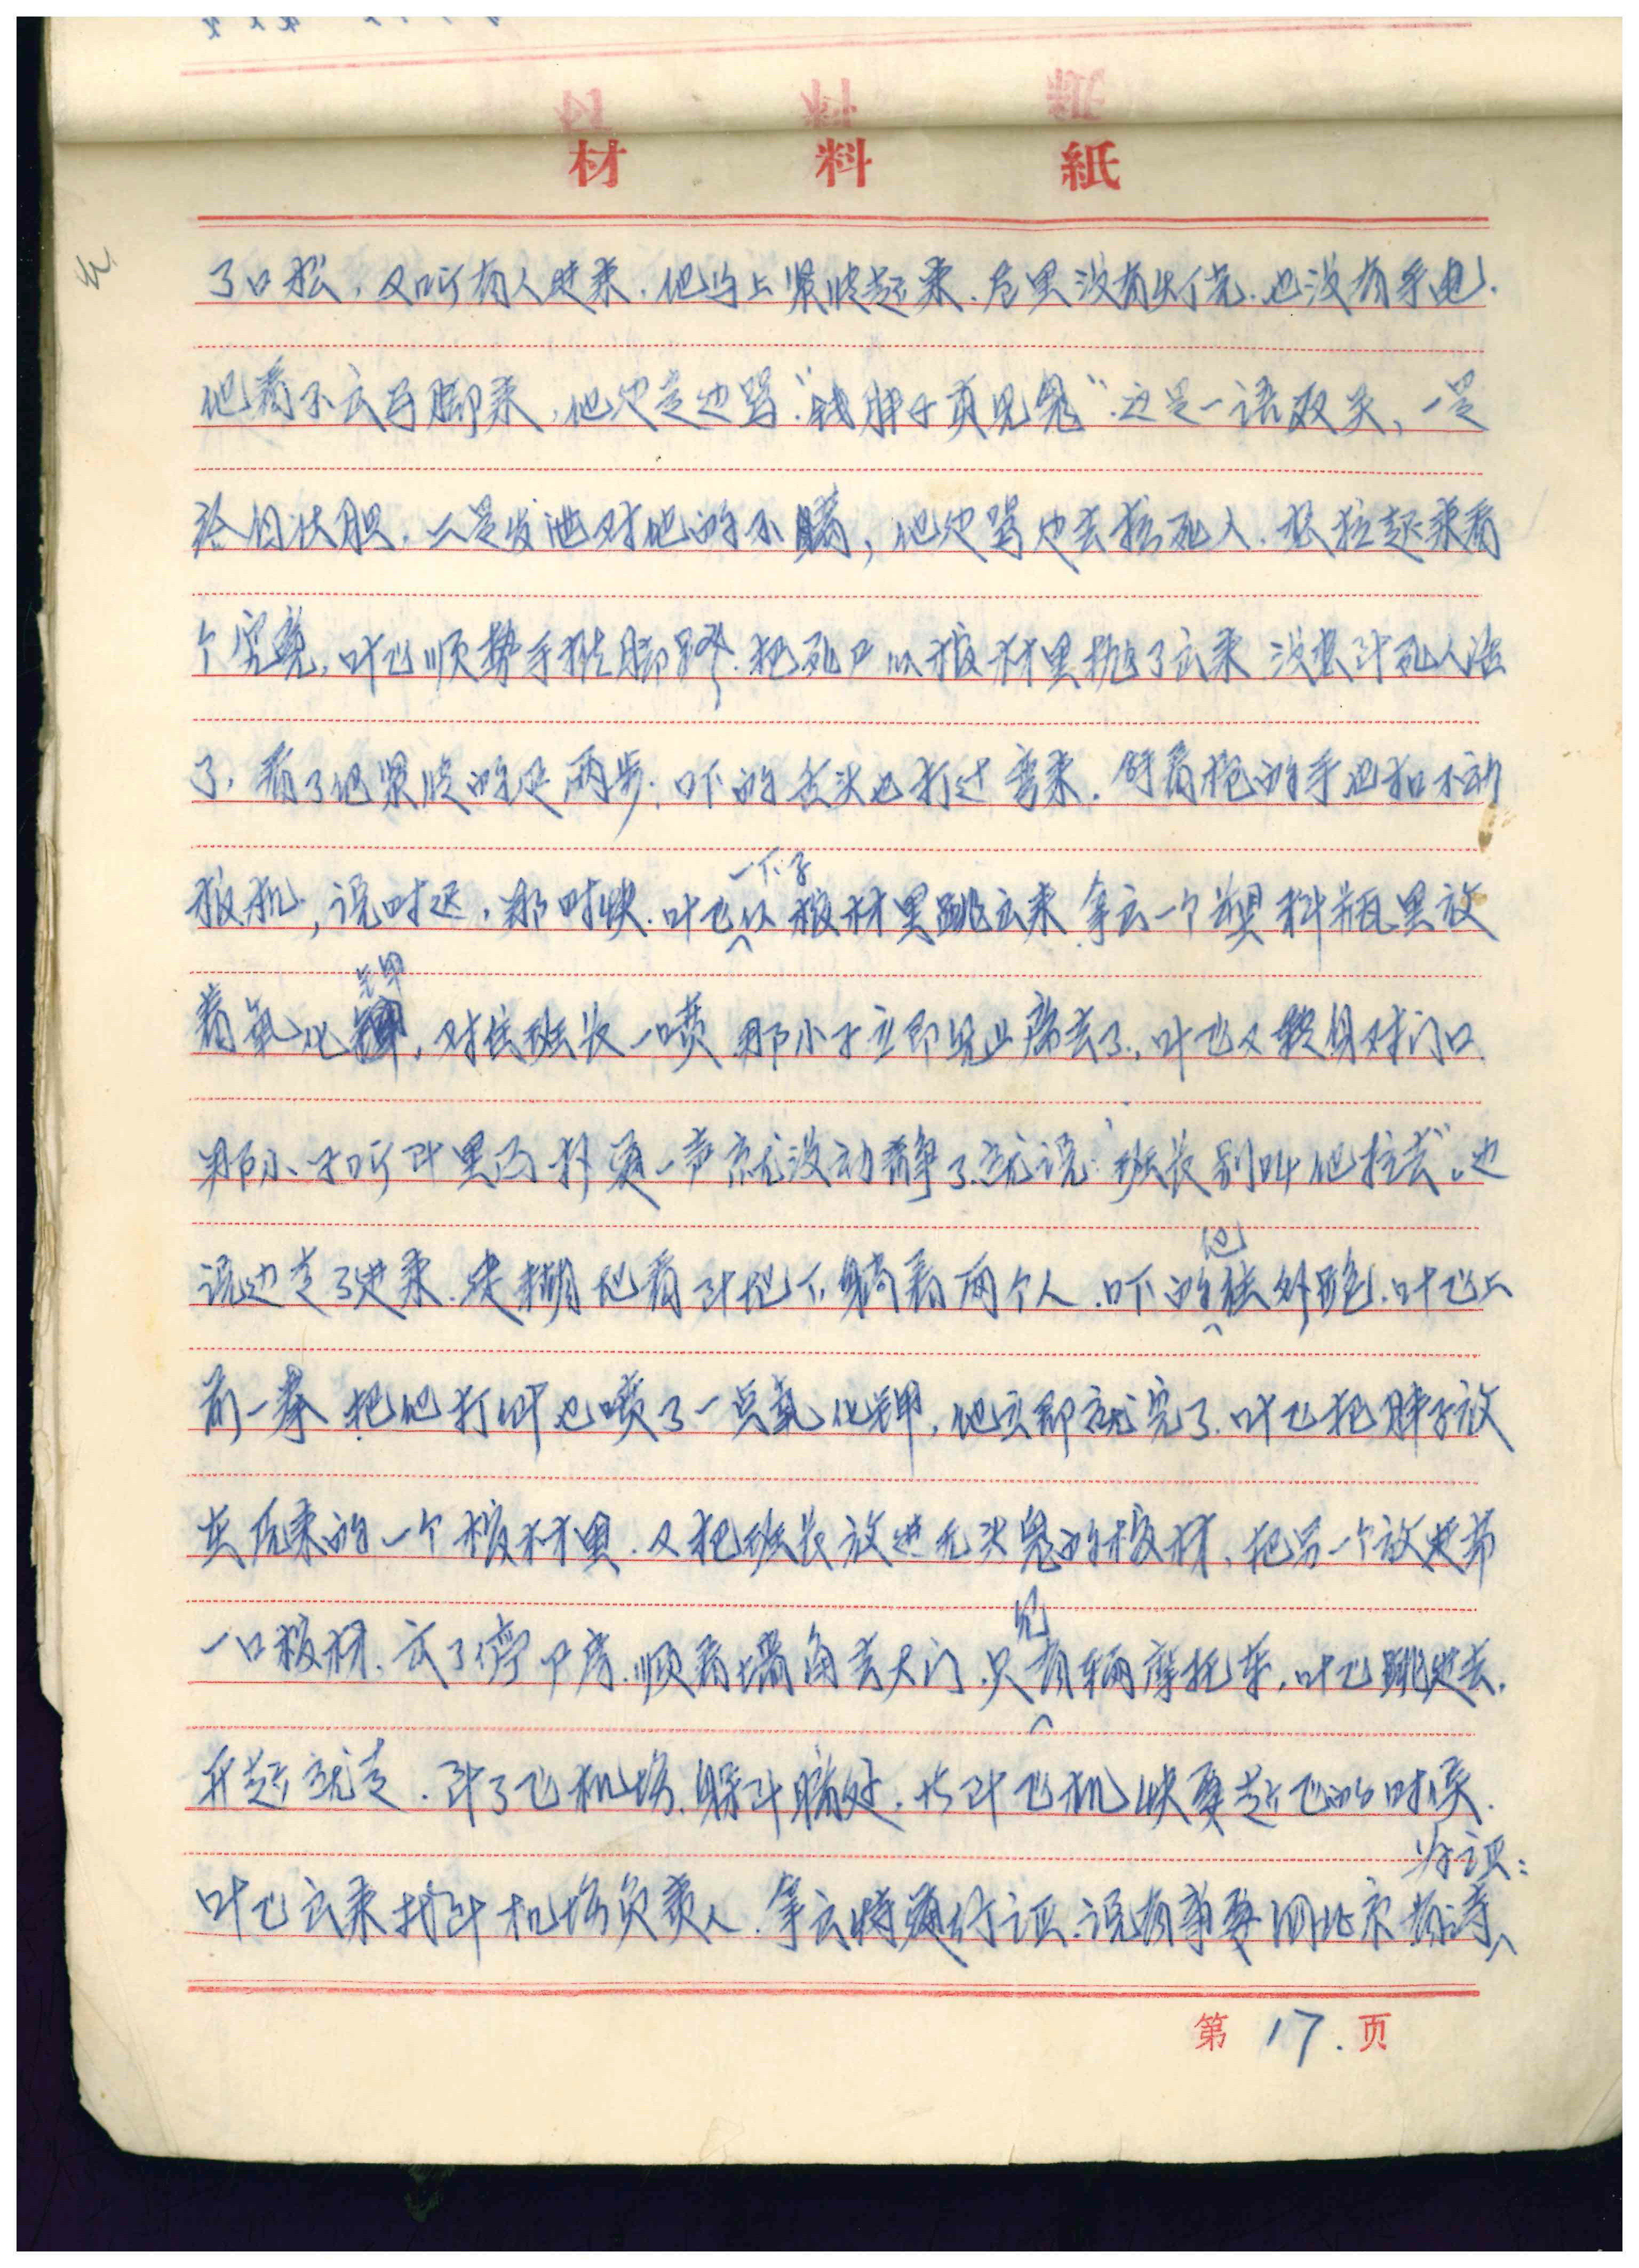 材料紙
了口松，又听有人进来．他马上紧张起来．屋里没有灯光．也没有手电．
他看不出马脚来，他边走边骂：“钱胖子真见鬼”．这是一语双关，一是
给自状胆．二是发泄对他的不满，他边骂边去拉死人．想拉起来看
个究竟，叶飞顺势手扒脚蹬．把死尸从板材里抛了出来 没想到死人活
了，看了他紧张的退两步，吓的舌头也打过弯来．射着枪的手也扣不动
板机，说时迟，那时快．叶飞一下子从板材里跳出来 拿出一个塑料瓶里放
着氧化钾，对住班长一喷 那小子立即完旦席去了，叶飞又转身对门口．
那小子听到里面扑通一声就没动静了．就说：“班长别叫他拉去”．边
说边走了进来．迷糊他看到地下躺着两个人．吓的他往外跑．叶飞上
前一拳 把他打倒也喷了一点氧化钾，他立即就完了．叶飞把胖子放
在后来的一个板材里．又把班长放进无头鬼的板材，把另一个放进第
一口板材．出了停尸房．顺着墙角去大门．只见有辆摩托车，叶飞跳过去，
开起就走．到了飞机场．躲到暗处．大到飞机快要起飞的时候．
叶飞出来找到机场负责人．拿出特通行证．说有事要回北京
第17．页